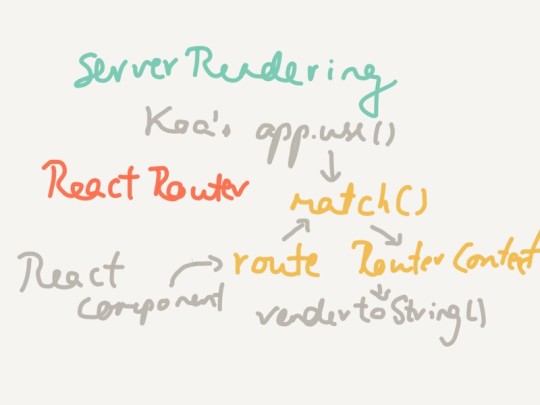 Server Rendering
Koa's app.use()
React Router
match()
React component
route
RouterContext
renderToString()